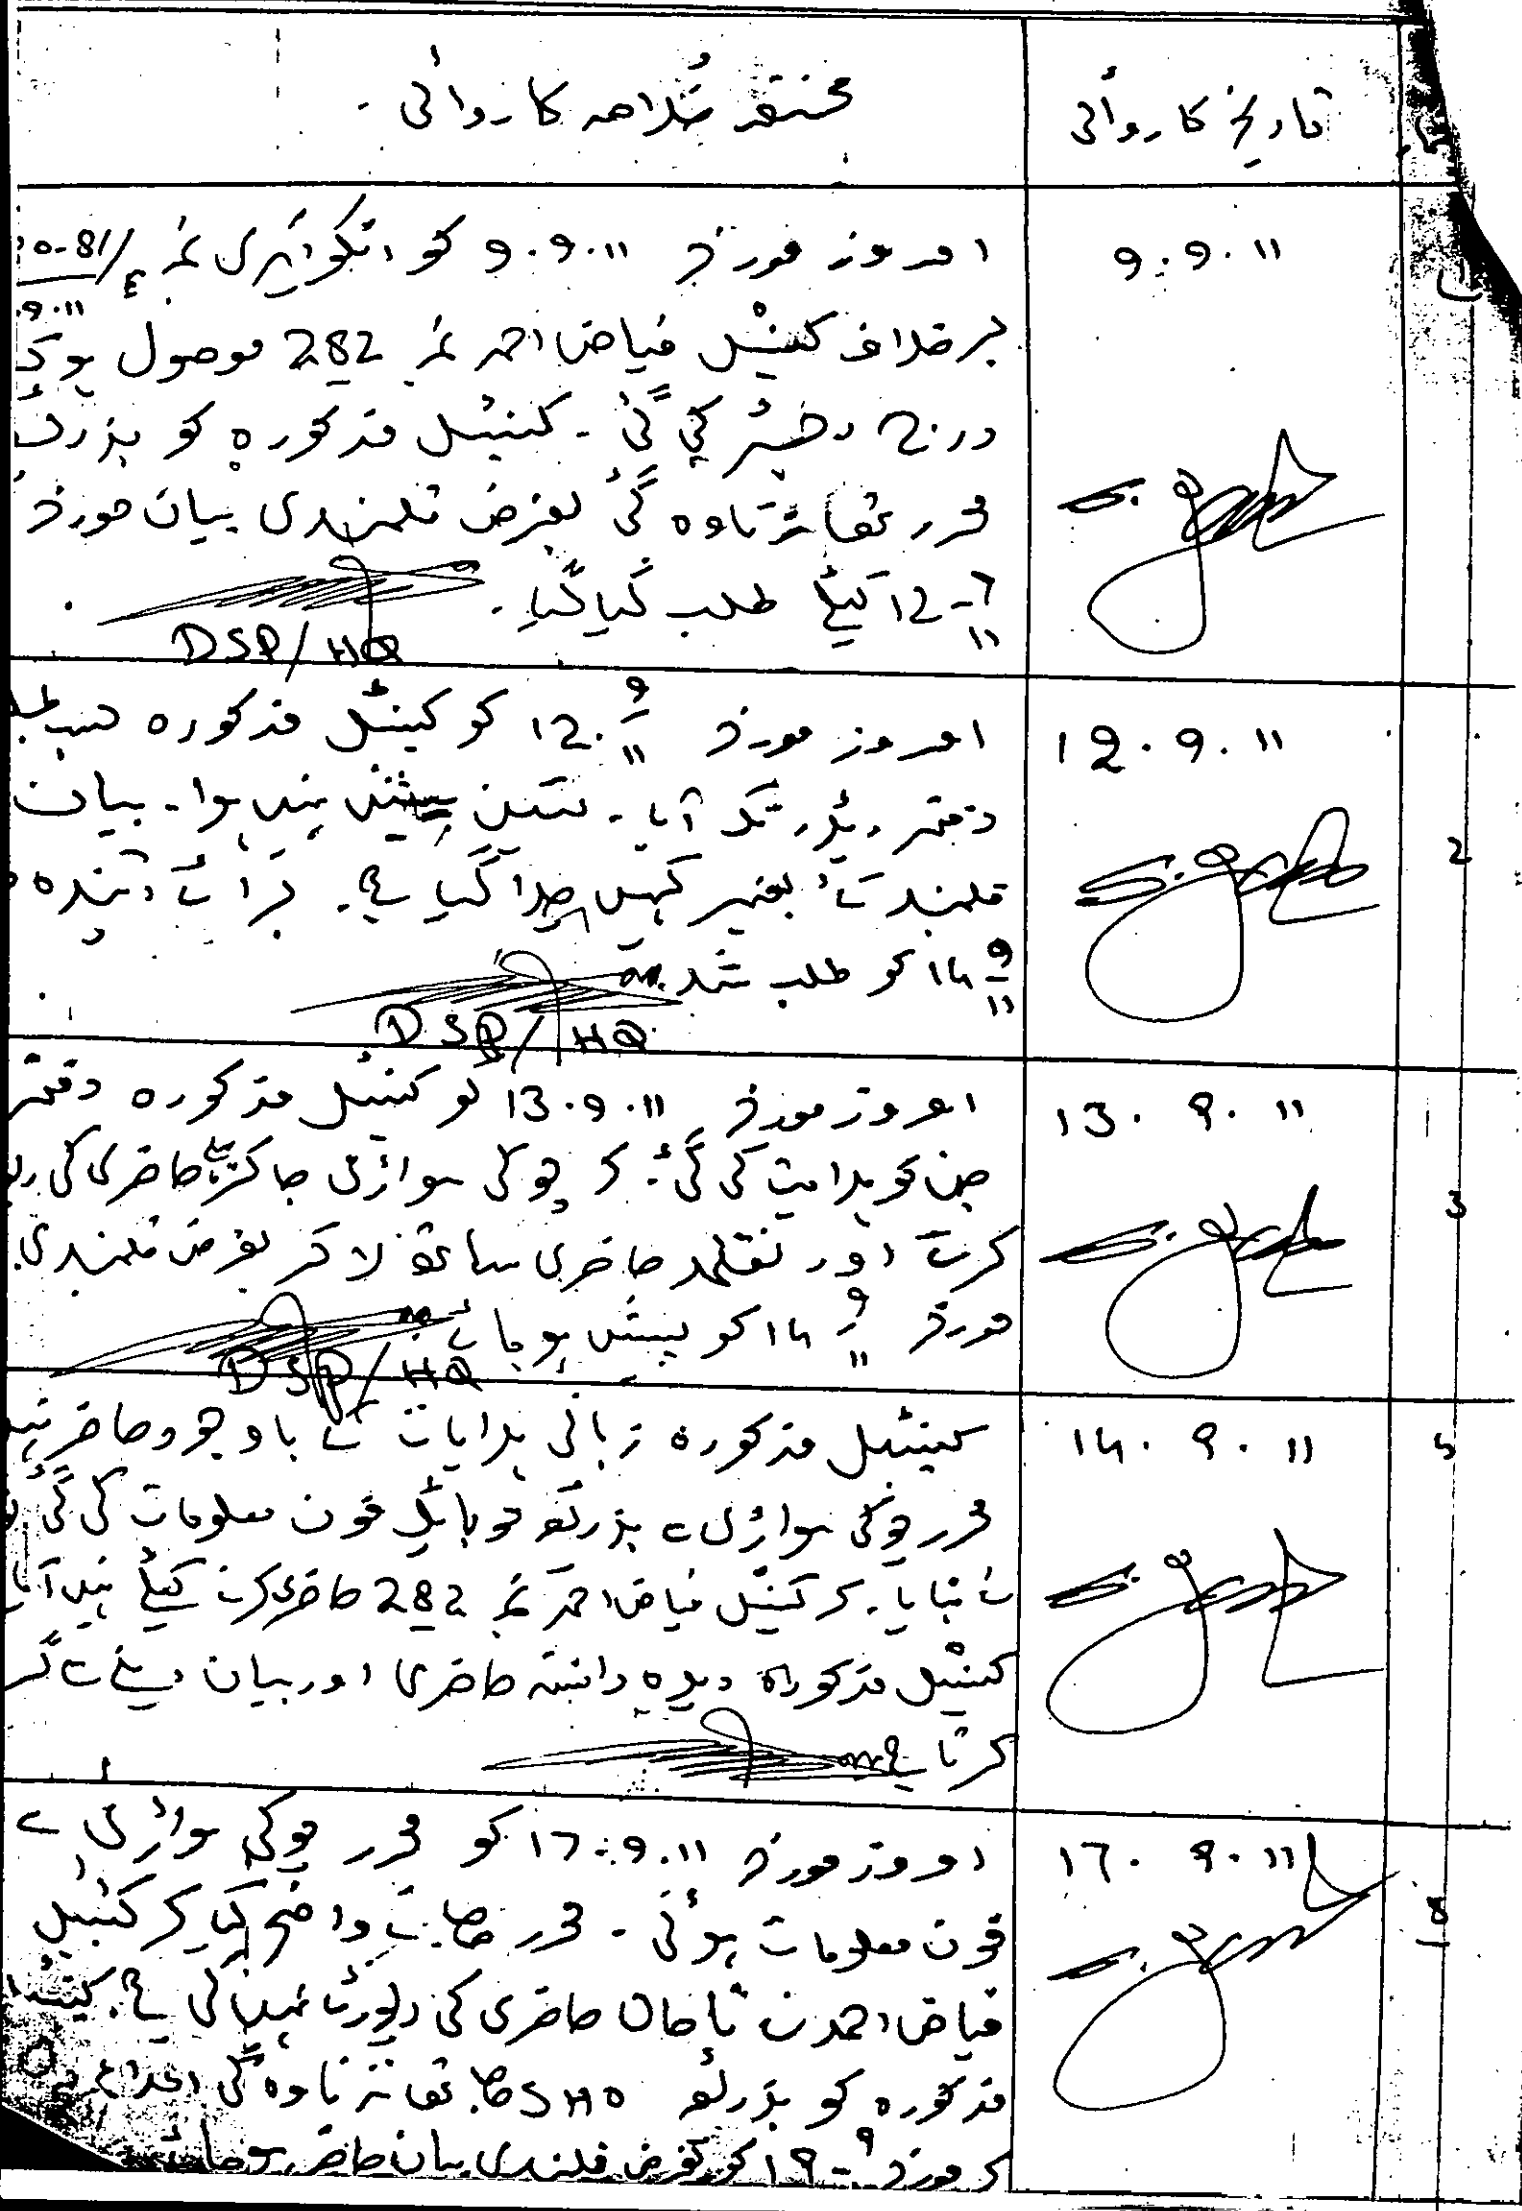 تاریخ کاروائی
مختصر خلاصہ کاروائی ۔
9.9.11
امروز مورخہ 9.9.11 کو انکوائری نمبر
9.11
برخلاف کنسٹیبل فیاض احمد نمبر 282 موصول ہو کر
درج رجسٹر کی گئی ۔ کنسٹیبل مذکورہ کو بذریعہ
محرر تھانہ ناوہ گئی بغرض قلمبندی بیان مورخہ
12 کیلئے طلب کیا گیا ۔
DSP/HQ
2
12.9.11
امروز مورخہ 12.9.11 کو کنسٹیبل مذکورہ حسب
دفتر ریڈر تک آیا ۔ لیکن پیش نہیں ہوا ۔ بیان
قلمبند کئے بغیر کہیں چلا گیا ہے ۔ برائے آئندہ
14.9.11 کو طلب شد
DSP/HQ
3
13.9.11
امروز مورخہ 13.9.11 کو کنسٹیبل مذکورہ دفتر
جن کو ہدایت کی گئی کہ چوکی سواڑی جا کر حاضری کی
کرے اور نقلمد حاضری ساتھ لا کر بغرض قلمبندی
مورخہ 14.9.11 کو پیش ہو جائے
DSP/HQ
14.9.11
کنسٹیبل مذکورہ زبانی ہدایات کے باوجود حاضر
محرر چوکی سواڑی سے بذریعہ موبائل فون معلومات کی گئی
نے بتایا ۔ کہ کنسٹیبل فیاض احمد نمبر 282 حاضری کرنے کیلئے نہیں آیا
کنسٹیبل مذکورہ دیدہ دانستہ حاضری اور بیان دینے سے
کرتا ہے
17.9.11
امروز مورخہ 17.9.11 کو محرر چوکی سواڑی سے
فون معلومات ہوئی ۔ محرر صاحب نے واضح کیا کہ کنسٹیبل
فیاض احمد نے تاحال حاضری کی رپورٹ نہیں کی ہے ۔
مذکورہ کو بذریعہ SHO صاحب تھانہ ناوہ گئی
کہ مورخہ 19 کو بغرض قلمبندی بیان حاضر ہو جائے